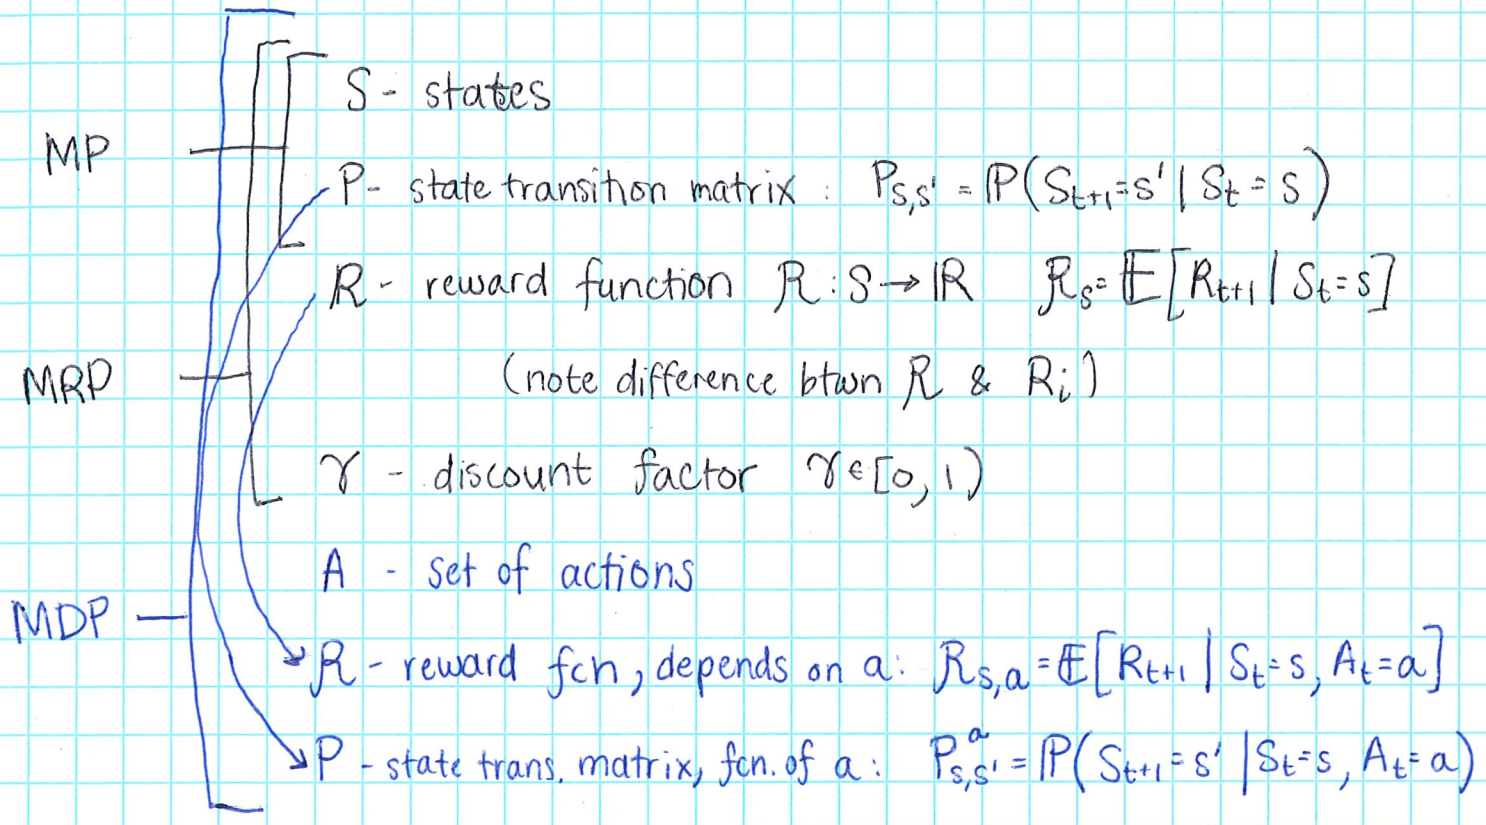 S - states
MP
P - state transition matrix : P_{s,s'} = ℙ(S_{t+1}=s' | S_t = s)
R - reward function R : S → ℝ R_s = 𝔼[R_{t+1} | S_t = s]
MRP
(note difference btwn R & R_i)
γ - discount factor γ ∈ [0, 1)
A - set of actions
MDP
R - reward fcn, depends on a: R_{s,a} = 𝔼[R_{t+1} | S_t = s, A_t = a]
P - state trans. matrix, fcn. of a: P^a_{s,s'} = ℙ(S_{t+1} = s' | S_t = s, A_t = a)